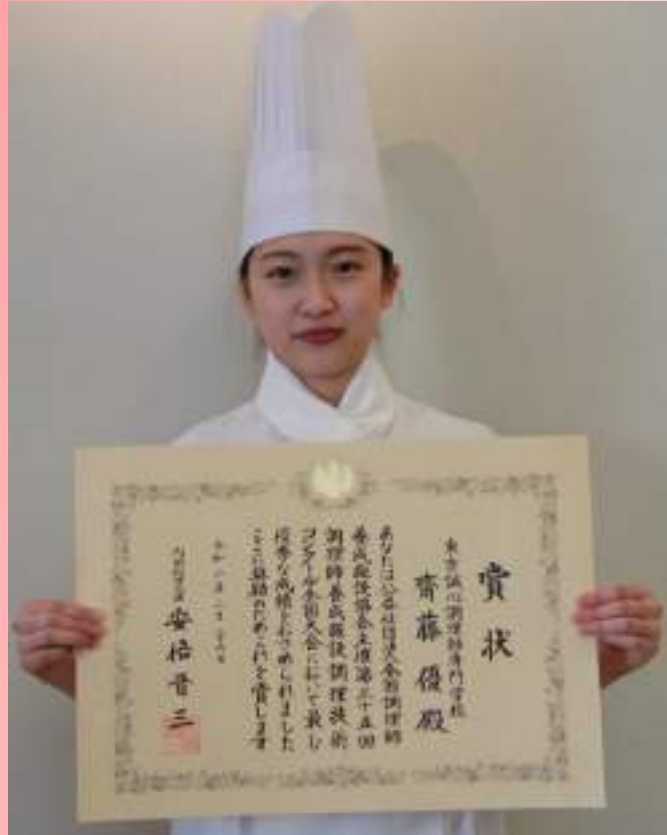 賞状
東京誠心調理師専門学校
齋藤優殿
あなたは公益社団法人全国調理師
養成施設協会主催第三十五回
調理師養成施設調理技術
コンクール全国大会において最も
優秀な成績をおさめられました
ここに栄誉をたたえこれを賞します
令和二年二月
内閣総理大臣 安倍晋三